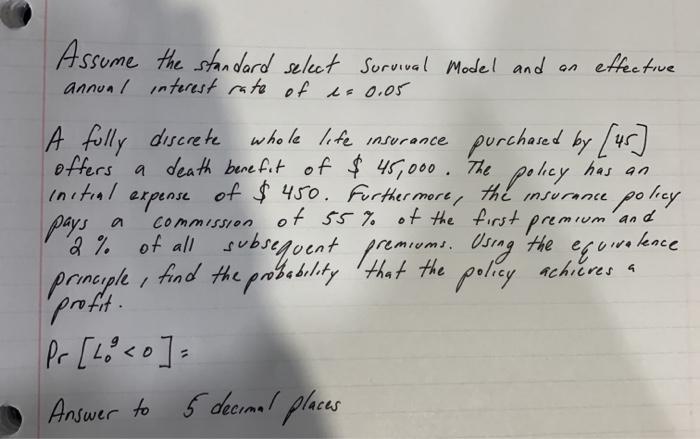 Assume the standard select Survival Model and an effective
annual interest rate of i = 0.05
A fully discrete whole life insurance purchased by [45]
offers a death benefit of $ 45,000. The policy has an
initial expense of $ 450. Furthermore, the insurance policy
pays a commission of 55 % of the first premium and
2 % of all subsequent premiums. Using the equivalence
principle, find the probability that the policy achieves a
profit.
Pr [L₀ᵍ < 0] =
Answer to 5 decimal places